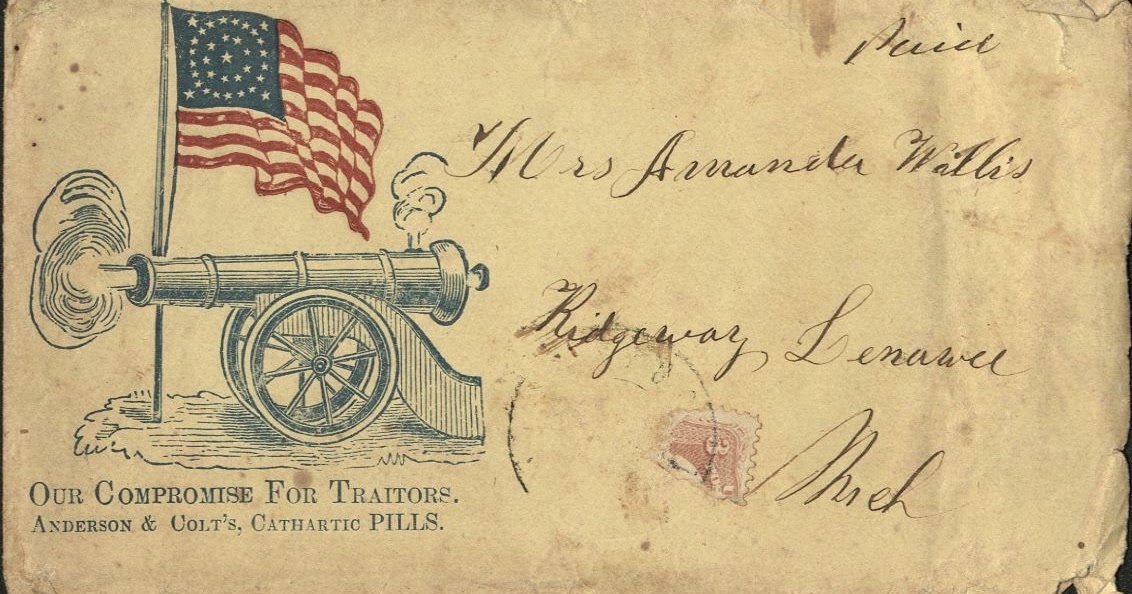 Paid
Mrs Amanda Wallis
Ridgeway Lenawee
Mich
3
OUR COMPROMISE FOR TRAITORS.
ANDERSON & COLT'S, CATHARTIC PILLS.